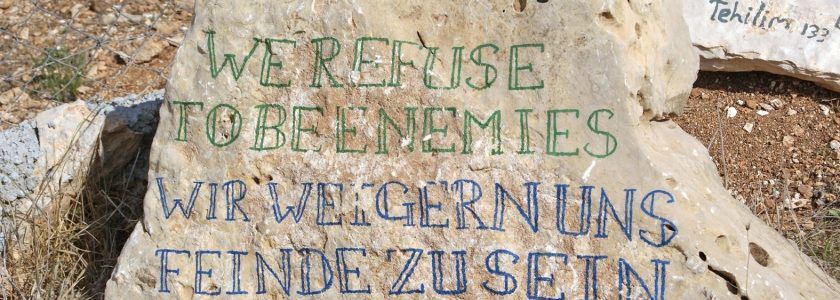 WE REFUSE
TO BE ENEMIES
WIR WEIGERN UNS
FEINDE ZU SEIN
Tehilim 133